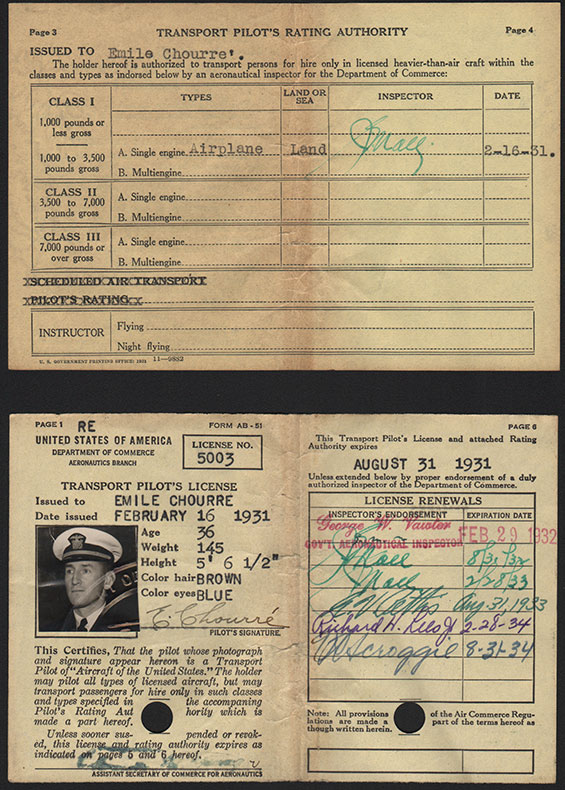 Page 3
TRANSPORT PILOT'S RATING AUTHORITY
Page 4
ISSUED TO Emile Chourre'.
The holder hereof is authorized to transport persons for hire only in licensed heavier-than-air craft within the
classes and types as indorsed below by an aeronautical inspector for the Department of Commerce:
TYPES
LAND OR
SEA
INSPECTOR
DATE
CLASS I
1,000 pounds or
less gross
1,000 to 3,500
pounds gross
A. Single engine Airplane Land 2-16-31.
B. Multiengine
CLASS II
3,500 to 7,000
pounds gross
A. Single engine
B. Multiengine
CLASS III
7,000 pounds or
over gross
A. Single engine
B. Multiengine
SCHEDULED AIR TRANSPORT
PILOT'S RATING
INSTRUCTOR
Flying
Night flying
U. S. GOVERNMENT PRINTING OFFICE: 1931 11—9882
PAGE 1
RE
FORM AB-51
UNITED STATES OF AMERICA
DEPARTMENT OF COMMERCE
AERONAUTICS BRANCH
LICENSE NO.
5003
TRANSPORT PILOT'S LICENSE
Issued to EMILE CHOURRE
Date issued FEBRUARY 16 1931
Age 36
Weight 145
Height 5' 6 1/2"
Color hair BROWN
Color eyes BLUE
E. Chourré
PILOT'S SIGNATURE.
This Certifies, That the pilot whose photograph
and signature appear hereon is a Transport
Pilot of "Aircraft of the United States." The holder
may pilot all types of licensed aircraft, but may
transport passengers for hire only in such classes
and types specified in the accompanying
Pilot's Rating Aut hority which is
made a part hereof.
Unless sooner sus- pended or revok-
ed, this license and rating authority expires as
indicated on pages 5 and 6 hereof.
ASSISTANT SECRETARY OF COMMERCE FOR AERONAUTICS
PAGE 6
This Transport Pilot's License and attached Rating
Authority expires
AUGUST 31 1931
Unless extended below by proper endorsement of a duly
authorized inspector of the Department of Commerce.
LICENSE RENEWALS
INSPECTOR'S ENDORSEMENT
EXPIRATION DATE
George W. Vawter
GOV'T. AERONAUTICAL INSPECTOR FEB 29 1932
8/31/32
2/28/33
Aug 31, 1933
2-28-34
Scroggie 8-31-34
Note: All provisions of the Air Commerce Regu-
lations are made a part of the terms hereof as
though written herein.